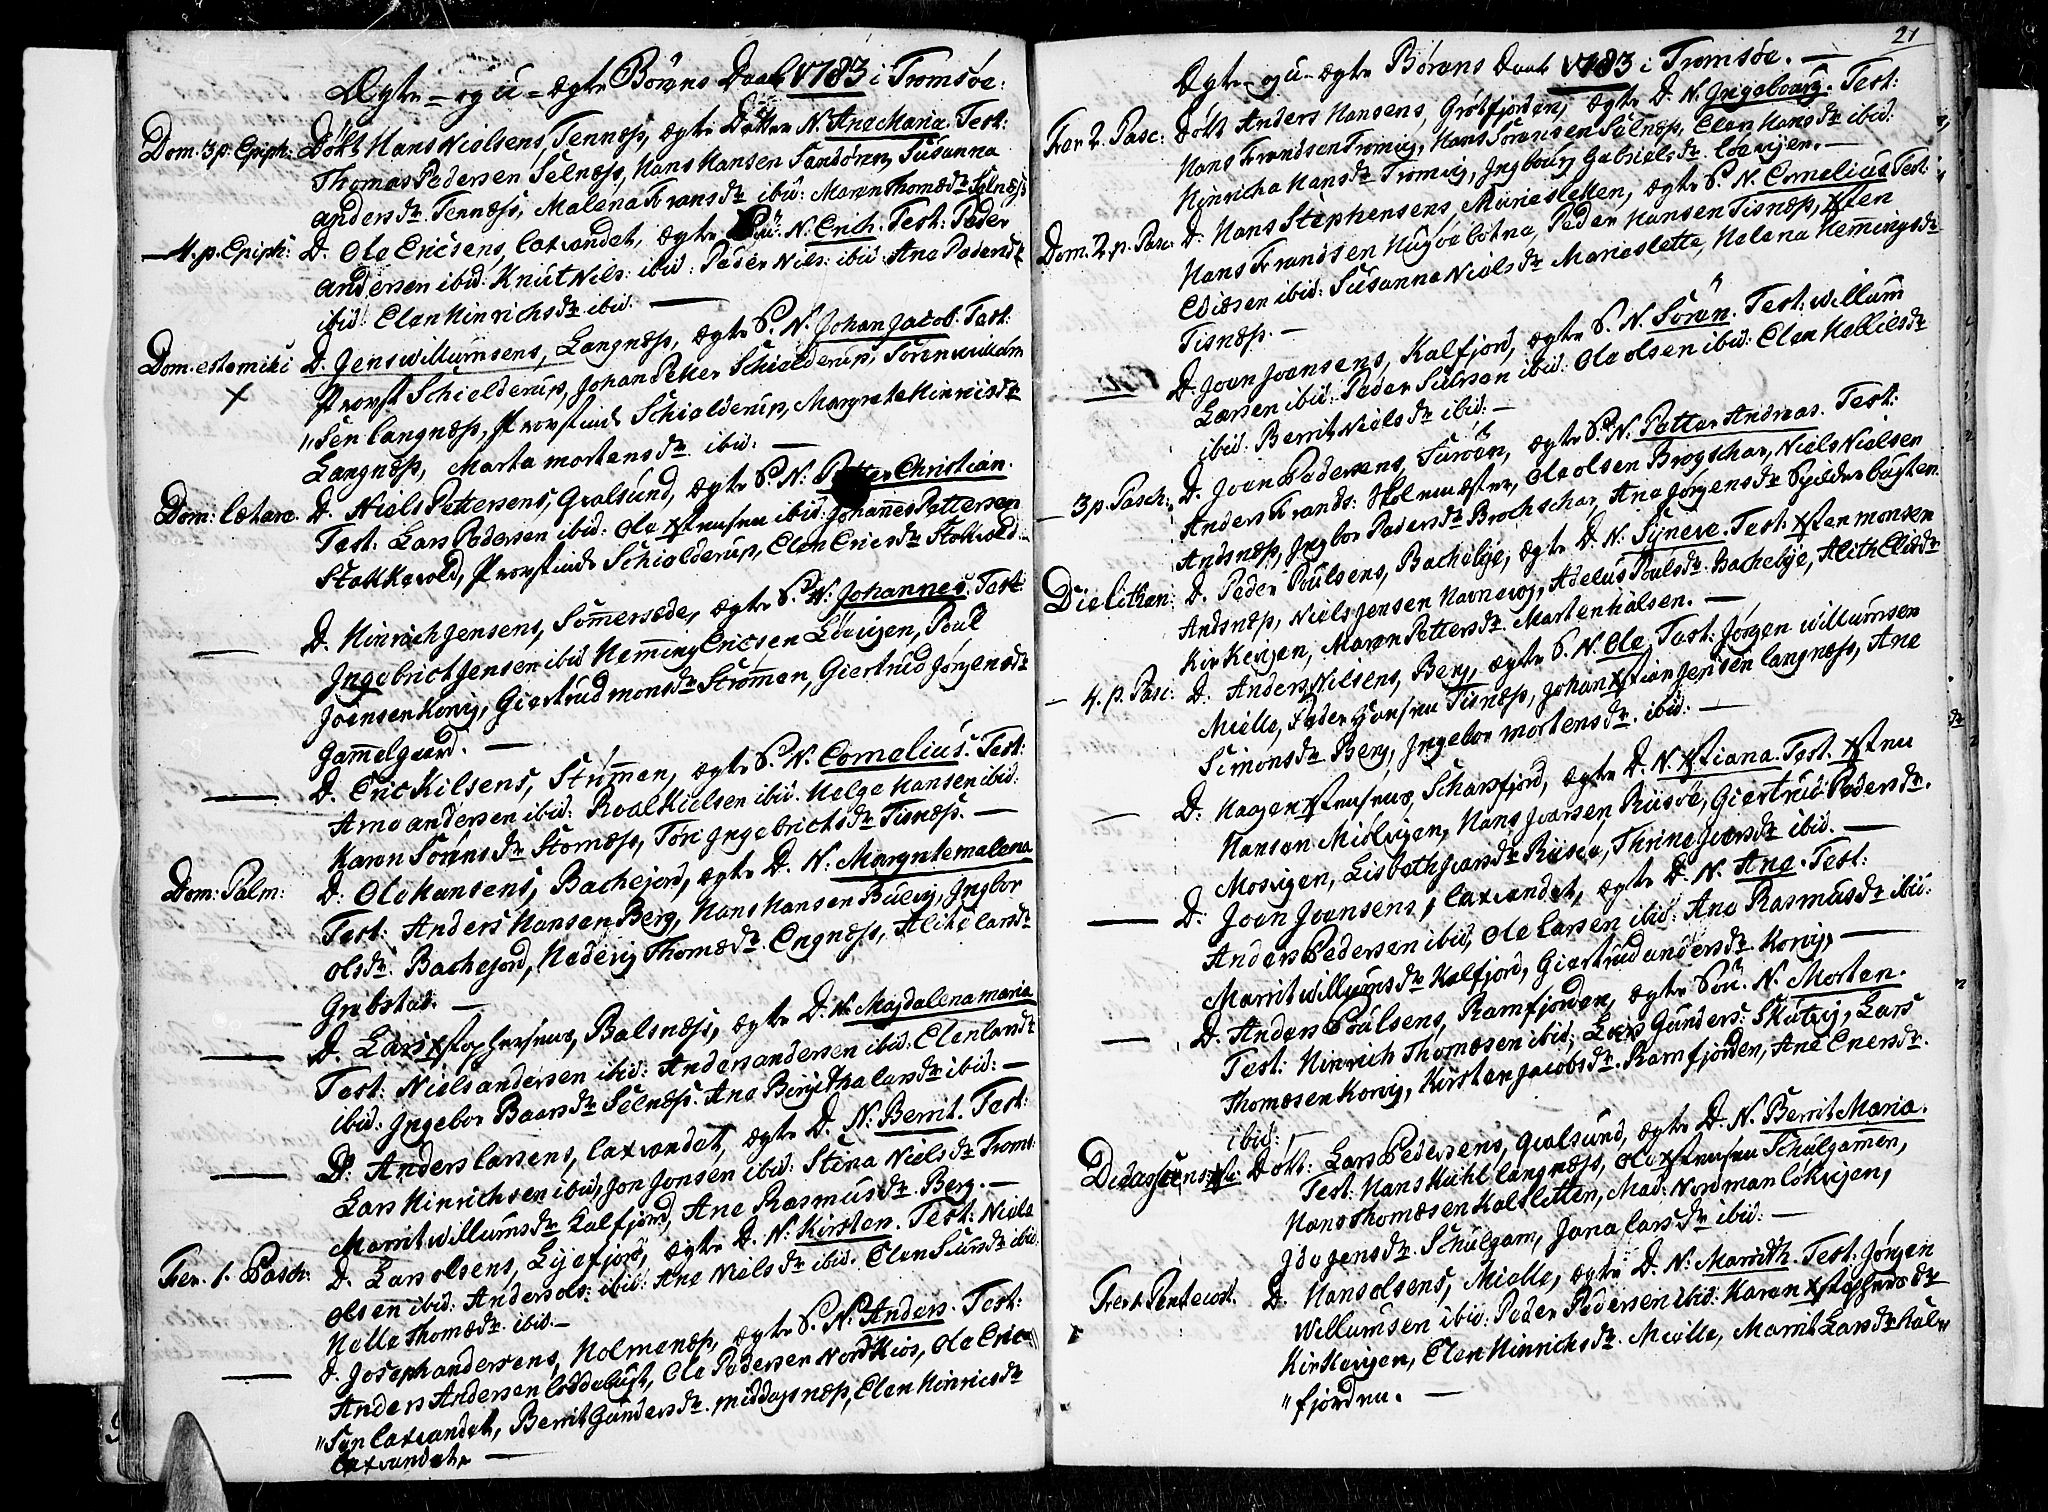 Ægte- og u-ægte Börns Daab 1783 i Tromsöe:
Dom. 3 p. Epiph: Döbt Hans Nielsens, Tennæss, ægte Datter N. Ane Maria. Test:
Thomas Pedersen Selnæss, Hans Hansen Sandören, Susanna
Anders dr. Tennæss, Malena Frans dr ibid: Maren Thomæ dr. Selnæss.
4. p. Epiph: D. Ole Ericsens, Laxvandet, ægte Sön. N. Erich. Test: Peder
Andersen ibid: Knut Niels: ibid: Peder Niels: ibid: Ane Peders dr
ibid: Elen Hinrichs dr ibid. —
Dom. estomihi D. Jens Willumsens, Langnæss, ægte S. N. Johan Jacob. Test:
Provst Schielderup, Johan Petter Schielderup, Sören Willum
"Sen Langnæss, Provstinde Schielderup, Margrete Hinrics dr
Langnæss, Marta Mortens dr. ibid: —
Dom: lætare. D. Niels Pettersens, Qvalsund, ægte S. N: Petter Christian.
Test: Lars Pedersen ibid: Ole Xstensen ibid: Johannes Pettersen
Stakkevold, Provstinde Schielderup, Elen Erics dr Stakvold.
— D. Hinrich Jensens, Sommersede, ægte S. N: Johannes. Test:
Ingebrict Jensen ibid Hemming Ericsen Lövigen, Poul
Joensen Korvig, Giertrud Mons dr Strømmen, Giertrud Jörgens dr
Gammelgaard. —
— D. Eric Kilsens, Strömmen, ægte S. N. Cornelius. Test:
Arne Andersen ibid: Roal Kielsen ibid. Helge Hansen ibid:
Karen Sörens dr Stornæss, Tori Ingebrichs dr Tisnæss. —
Dom: Palm: D. Ole Hansens, Bachejord, ægte D. N: Margrete Malena
Test: Anders Hansen Berg, Hans Hansen Bulvig, Ingbor
Ols dr. Bachejord, Hedevig Thomæ dr. Engnæss, Alithe Lars dr
Grebstad. —
— D. Lars Xstophersens, Balsnæss, ægte D. N. Magdalena Maria
Test: Niels Andersen ibid: Anders Andersen ibid: Elen Lars dr
ibid: Ingebor Baars dr Selnæss. Ane Birgitha Lars dr ibid: —
— D. Anders Larsens, Laxvandet, ægte D. N: Berrit. Test:
Lars Hinrichsen ibid, Jon Jonsen ibid: Stina Niels dr Troms:
Marrit Willums dr Kalfjord, Ane Rasmus dr. Berg. —
Fer. 1. Pasch: D. Lars Olsens, Lyefjord, ægte D. N. Kirsten. Test: Niels
Olsen ibid: Anders Ols: ibid: Ane Niels dr ibid. Elen Siurs dr ibid.
Helle Thomæ dr ibid. —
— D. Joseph Andersens, Holmenæss, ægte S. N. Anders. Test:
Anders Andersen Loddebugt, Ole Pedersen Nordkios, Ole Eric
"Sen Laxvandet, Berrit Gunders dr. Middagsnæss, Elen Hinrics dr
Laxvandet. —
21
Ægte- og u-ægte Börns Daab 1783 i Tromsöe. —
Fer. 2. Pasc: Döbt Anders Hansens, Grötfjorden, ægte D. N. Ingebourg. Test:
Hans Frandsen Tromvig, Hans Sörensen Sulnæss, Elen Hans dr ibid:
Hinricha Hans dr Tromvig, Ingbourg Gabriels dr. Löevigen. —
Dom. 2. p. Pasc. D. Hans Stephensens, Marieslætten, ægte S. N. Cornelius Test:
Hans Frandsen Hugoebotne, Peder Hansen Tisnæss, Xsten
Ediæsen ibid: Susanna Niels dr Marieslette, Helena Hemmings dr
Tisnæss. —
— D. Joen Joensens, Kalfjord, ægte S. N. Sören. Test: Willum
Larsen ibid: Peder Siursen ibid: Ole Olsen ibid: Elen Hallies dr
ibid. Berrit Niels dr ibid: —
— 3 p. Pasch: D. Joen Pedersens, Turöen, ægte S. N. Petter Andreas. Test:
Anders Frands: Skolemester, Ole Olsen Brogschar, Niels Nielsen
Andsnæss, Ingbor Peders dr Brochschar, Ane Jörgens dr Spilderbugten
Die Litean: D. Peder Poulsens, Bachebye, ægte D. N. Syneve. Test: Xsten Monsen
Andsnæss, Niels Jensen Havnevog, Adelus Pouls dr. Bachebye, Alith Elis dr
Kirkevigen, Maren Petters dr. Martenhalsen. —
— 4. p. Pasc: D. Anders Nilsens, Berg, ægte S. N. Ole. Test: Jörgen Willumsen
Mielle, Peder Hansen Tisnæss, Johan Xstian Jensen Langnæss, Ane
Simons dr Berg, Ingebor Mortens dr. ibid: —
— D. Haagen Xstensens, Scharsfjord, ægte D. N. Xstiana. Test. Xsten
Hansen Miölvigen, Hans Ivarsen Riisöe, Giertrud Peders dr.
Mosvigen, Lisbeth Ivars dr Riisöe, Thrine Ivers dr ibid. —
— D. Joen Joensens, Laxvandet, ægte D. N. Ane. Test:
Anders Pedersen ibid, Ole Larsen ibid: Ane Rasmus dr ibid:
Marrit Willums dr Kalfjord, Giertrud Anders dr. Korvig, —
— D. Anders Poulsens, Ramfjorden, ægte Sön. N. Morten.
Test: Hinrich Thomæsen ibid; Lars Gunders: Skutvig, Lars
Thomæsen Korvig, Kirsten Jacobs dr. Ramfjorden, Ane Eners dr.
ibid: —
Die ascens: Xsti: Döbt: Lars Pedersens, Qvalsund, ægte D. N. Berrit Maria.
Test: Hans Kuhl Langnæss, Ole Xstensen Schulgammen,
Hans Thomæsen Kalsletten, Mad: Nordman Lökvigen,
Ida Jens dr. Schulgam, Jana Lars dr ibid: —
Fer. 1. Pentecost. D. Hans Olsens, Mielle, ægte D. N: Marrith. Test. Jörgen
Willumsen ibid: Peder Pedersen ibid: Karen Xstophers dr
Kirkevigen, Elen Hinrichs dr. Mielle, Marrit Lars dr Kal"
"fjorden. —